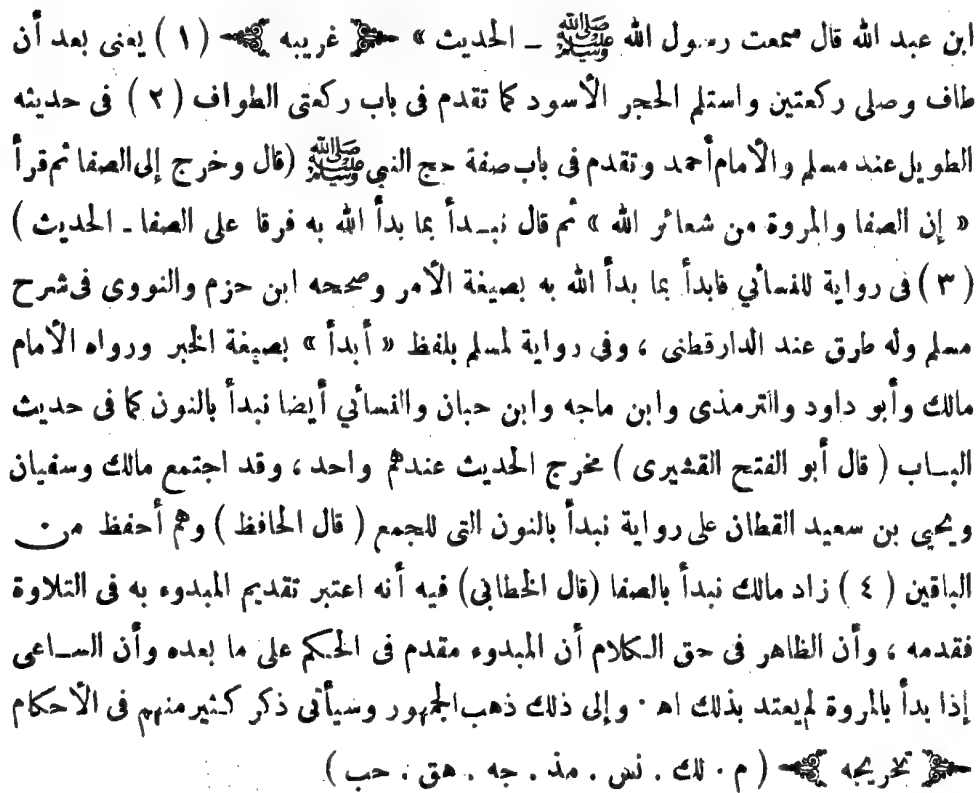 ابن عبد الله قال سمعت رسول الله ﷺ ـ الحديث » ﴿ غريبه ﴾ ( ١ ) يعنى بعد أن
طاف وصلى ركعتين واستلم الحجر الأسود كما تقدم فى باب ركعتى الطواف ( ٢ ) فى حديثه
الطويل عند مسلم والأمام أحمد وتقدم فى باب صفة حج النبى ﷺ (قال وخرج إلى الصفا ثم قرأ
« إن الصفا والمروة من شعائر الله » ثم قال نبـدأ بما بدأ الله به فرقا على الصفا ـ الحديث )
( ٣ ) فى رواية للنسائي فابدأ بما بدأ الله به بصيغة الأمر وصححه ابن حزم والنووى فى شرح
مسلم وله طرق عند الدارقطنى ، وفى رواية لمسلم بلفظ « أبدأ » بصيغة الخبر ورواه الأمام
مالك وأبو داود والترمذى وابن ماجه وابن حبان والنسائي أيضا نبدأ بالنون كما فى حديث
البـاب ( قال أبو الفتح القشيرى ) مخرج الحديث عندهم واحد ، وقد اجتمع مالك وسفيان
ويحيى بن سعيد القطان على رواية نبدأ بالنون التى للجمع ( قال الحافظ ) وهم أحفظ من
الباقين ( ٤ ) زاد مالك نبدأ بالصفا (قال الخطابى) فيه أنه اعتبر تقديم المبدوء به فى التلاوة
فقدمه ، وأن الظاهر فى حق الـكلام أن المبدوء مقدم فى الحـكم على ما بعده وأن السـاعى
إذا بدأ بالمروة لم يعتد بذلك اهـ ٠ وإلى ذلك ذهب الجمهور وسيأتى ذكر كـثير منهم فى الأحكام
﴿ تخريجه ﴾ ( م . لك . نس . مذ . جه . هق . حب )